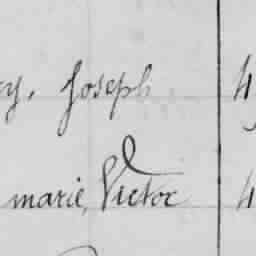 y, Joseph 4
marie, Victor 4